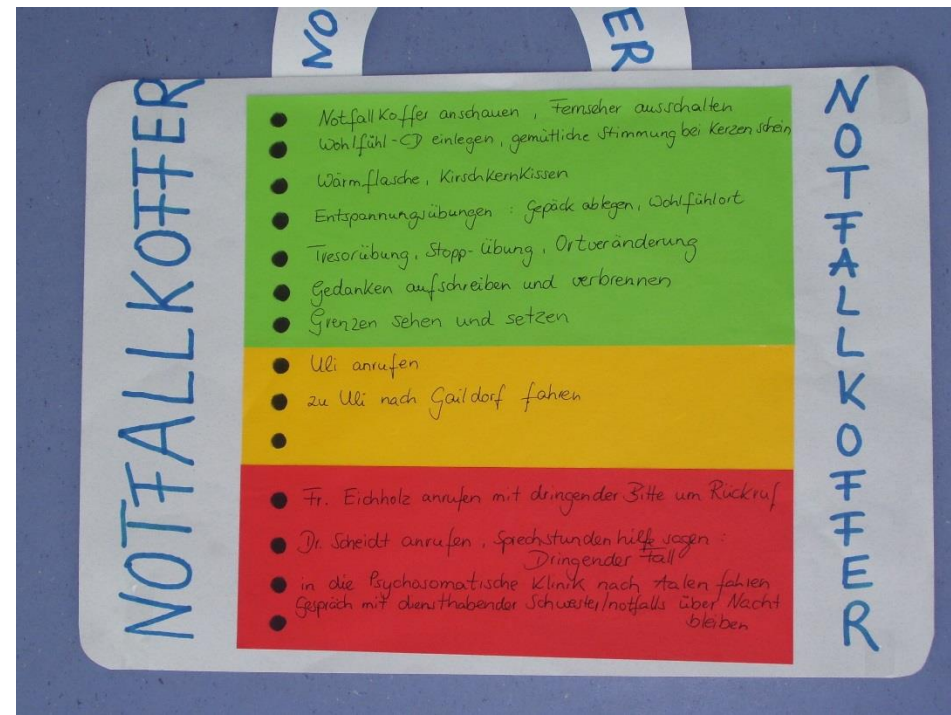 NO
ER
NOTFALLKOFFER
Notfallkoffer anschauen, Fernseher ausschalten
Wohlfühl-CD einlegen, gemütliche Stimmung bei Kerzenschein
Wärmflasche, Kirschkernkissen
Entspannungsübungen: Gepäck ablegen, Wohlfühlort
Tresorübung, Stopp-Übung, Ortveränderung
Gedanken aufschreiben und verbrennen
Grenzen sehen und setzen
Uli anrufen
zu Uli nach Gaildorf fahren
Fr. Eichholz anrufen mit dringender Bitte um Rückruf
Dr. Scheidt anrufen, Sprechstundenhilfe sagen:
Dringender Fall
in die Psychosomatische Klinik nach Aalen fahren
Gespräch mit diensthabender Schwester/notfalls über Nacht
bleiben
NOTFALLKOFFER